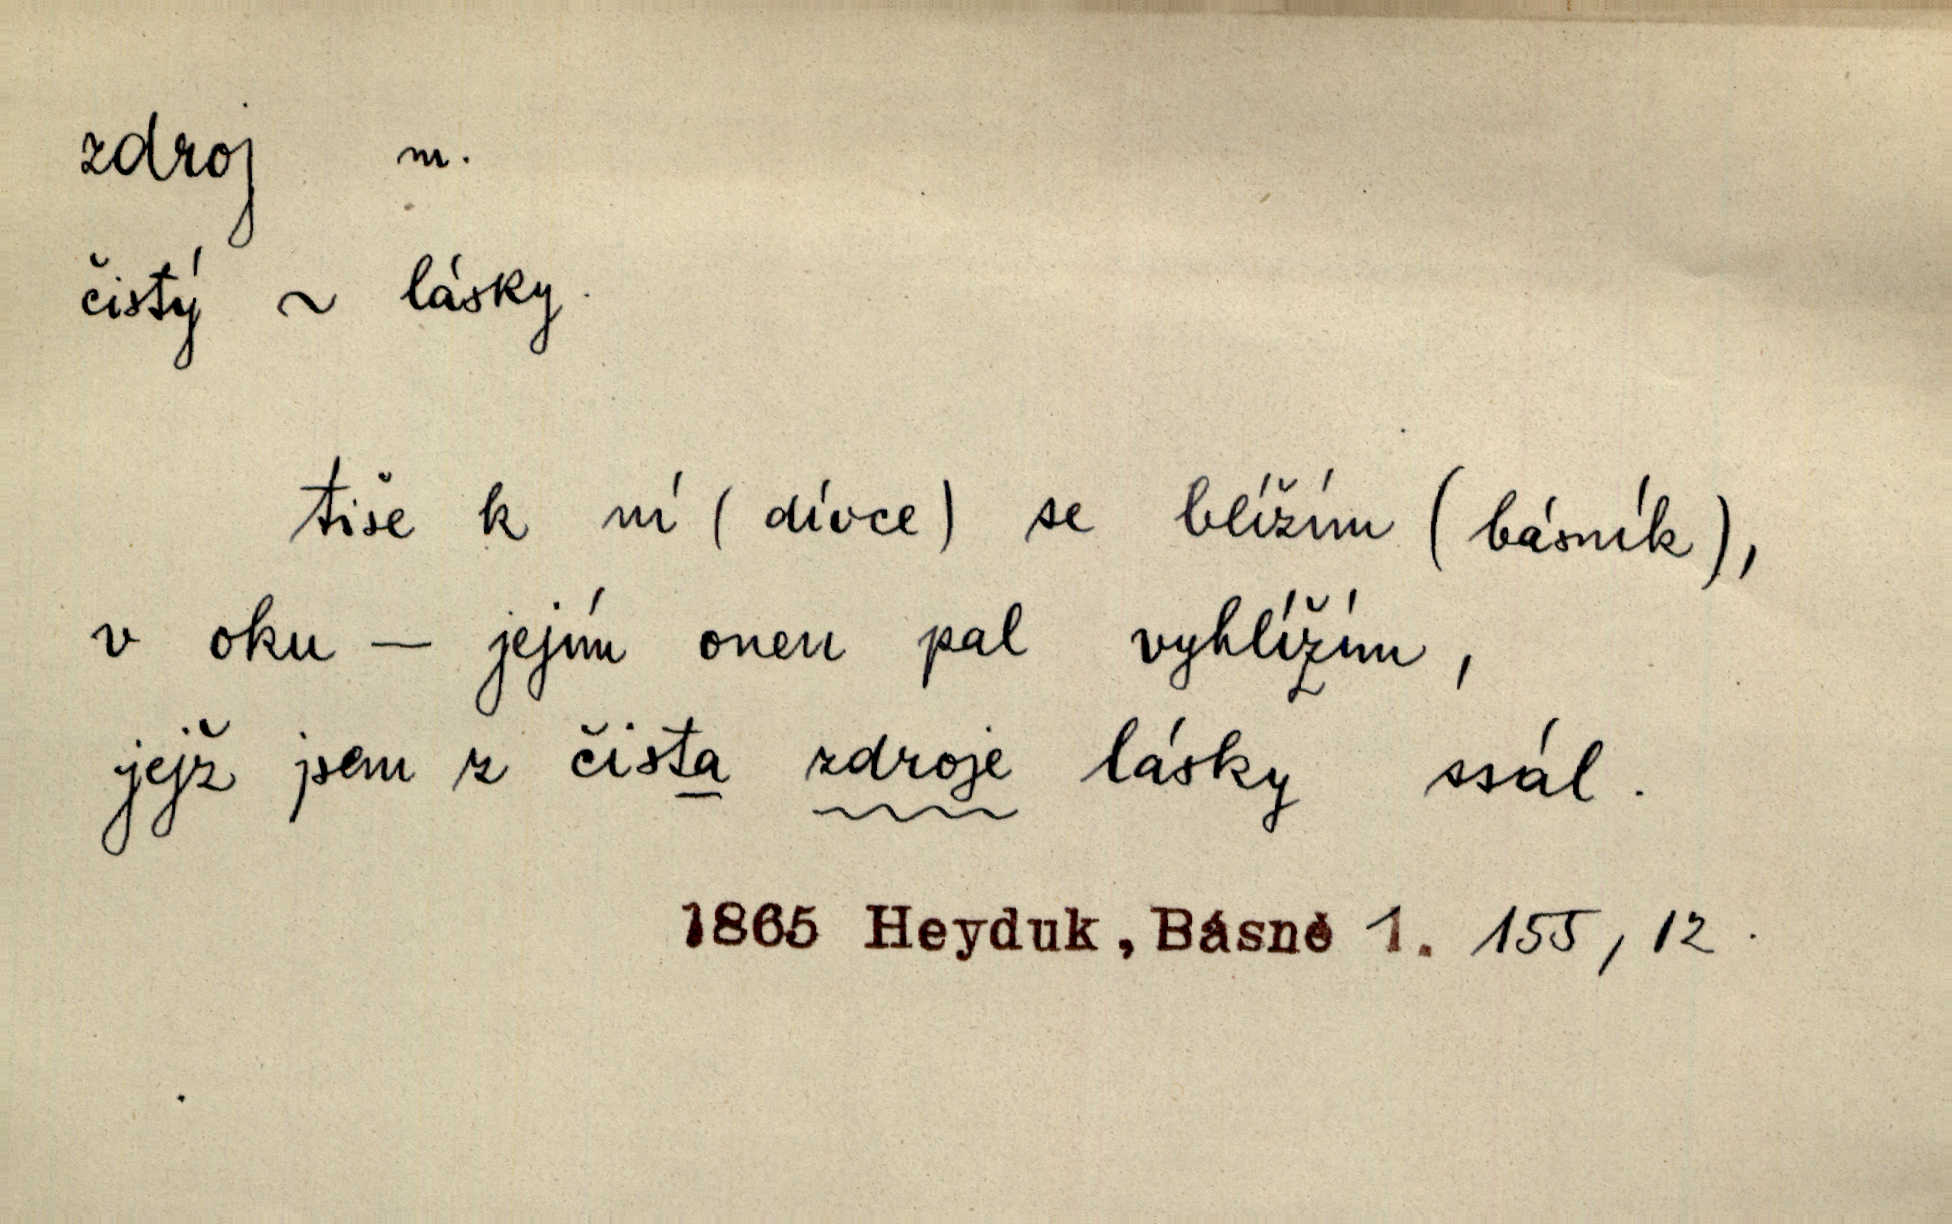 zdroj m.
čistý ~ lásky.
tiše k ní (dívce) se blížím (básník),
v oku — jejím onen pal vyhlížím,
jejž jsem z čista zdroje lásky ssál.
1865 Heyduk, Básně 1. 155, 12.